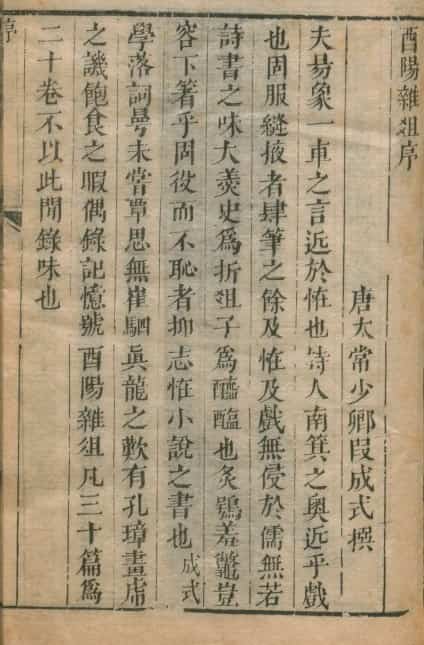 酉陽雜俎序
唐太常少卿段成式撰
夫昜象一車之言近於恠也詩人南箕之奧近乎戲
也固服縫掖者肆筆之餘及恠及戲無侵於儒無若
詩書之味大羹史爲折俎子爲醯醢也炙鴞羞鼈豈
容下箸乎固役而不恥者抑志恠小說之書也成式
學落詞曼未嘗覃思無崔駰眞龍之歎有孔璋畫虎
之譏飽食之暇偶錄記憶號酉陽雜俎凡三十篇爲
二十卷不以此間錄味也
序